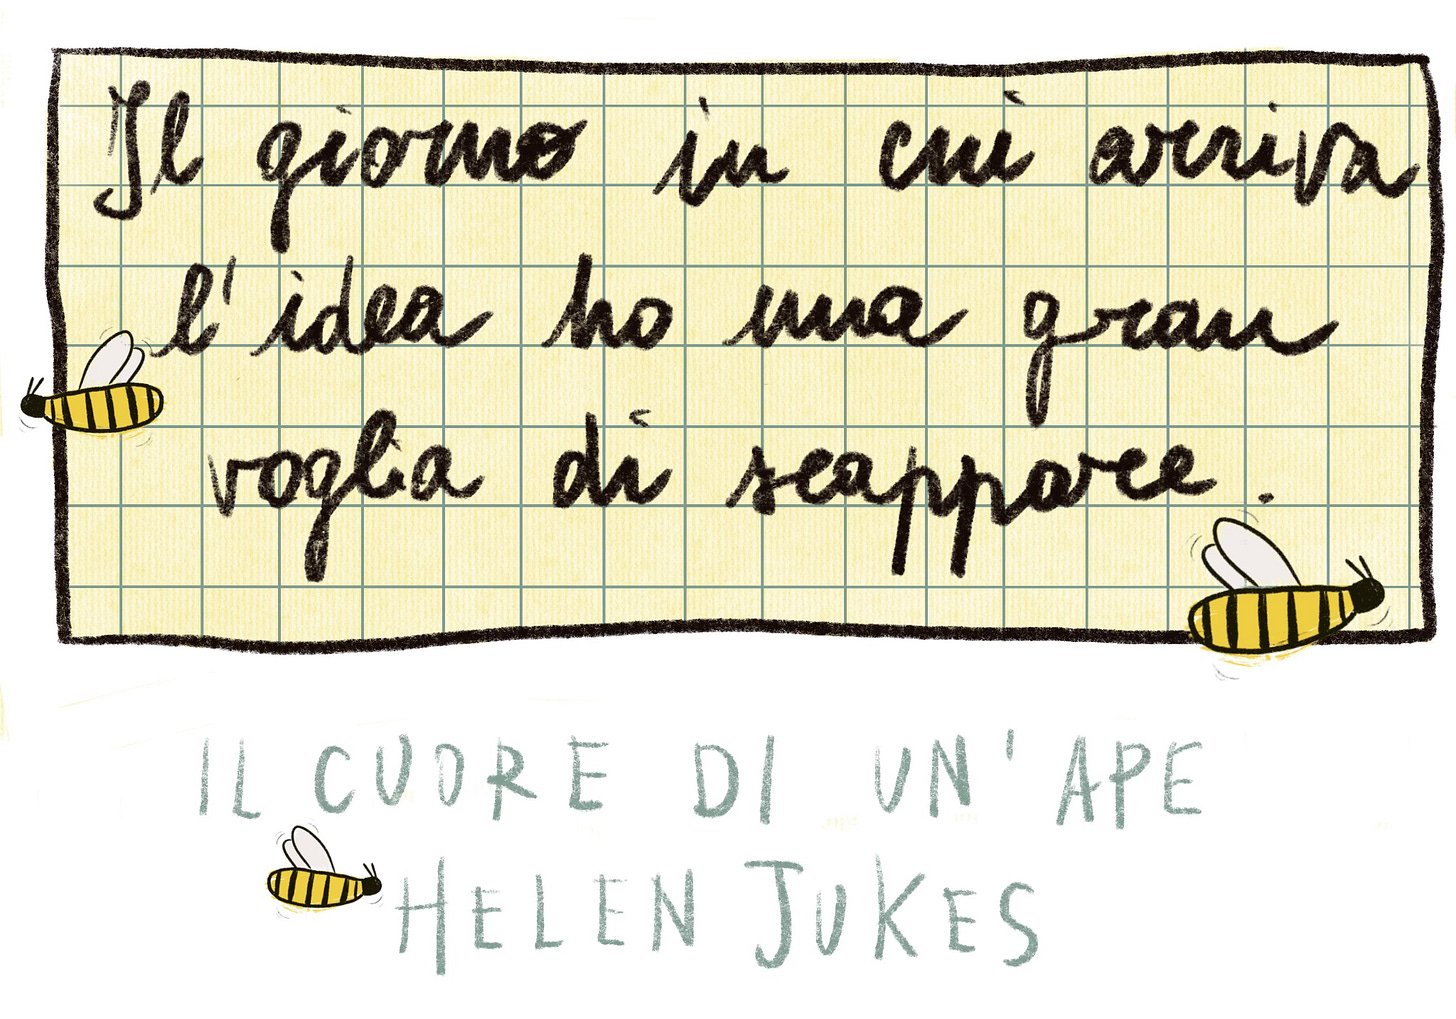 Il giorno in cui arriva
l'idea ho una gran
voglia di scappare.
IL CUORE DI UN'APE
HELEN JUKES